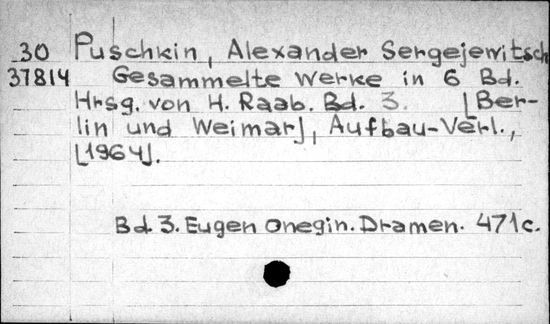 30 Puschkin, Alexander Sergejewitsch
37814 Gesammelte Werke in 6 Bd.
Hrsg. von H. Raab. Bd. 3. [Ber-
lin und Weimar], Aufbau-Verl.,
[1964].
Bd. 3. Eugen Onegin. Dramen. 471c.